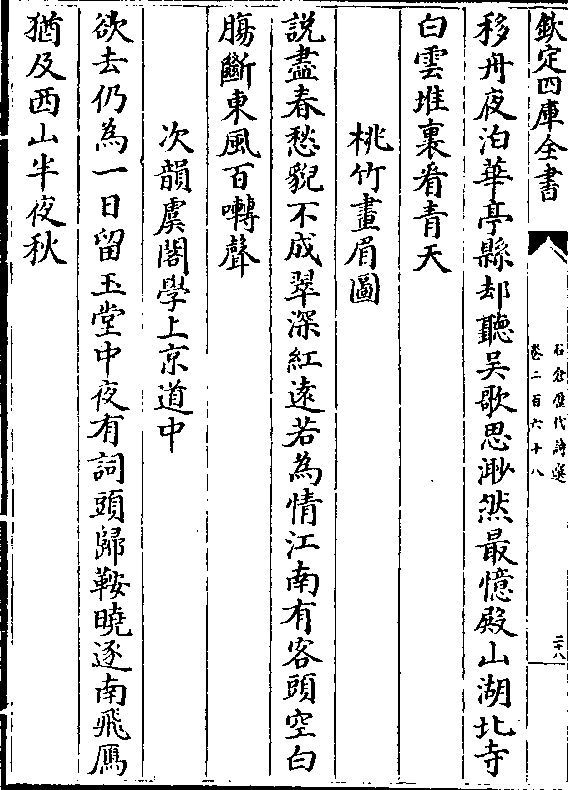 欽定四庫全書
石倉歷代詩選
卷二百六十八
二十八
移舟夜泊華亭縣却聽吴歌思渺然最憶殿山湖北寺
白雲堆裏看青天
桃竹畫眉圖
説盡春愁貌不成翠深紅遠若為情江南有客頭空白
膓斷東風百囀聲
次韻虞閣學上京道中
欲去仍為一日留玉堂中夜有詞頭歸鞍曉逐南飛鴈
猶及西山半夜秋